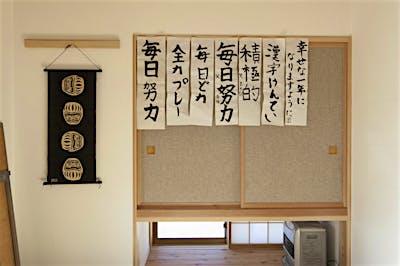 幸せな一年に
なりますように
漢字けんてい
積極的
毎日努力
毎日ど力
全力プレー
毎日努力